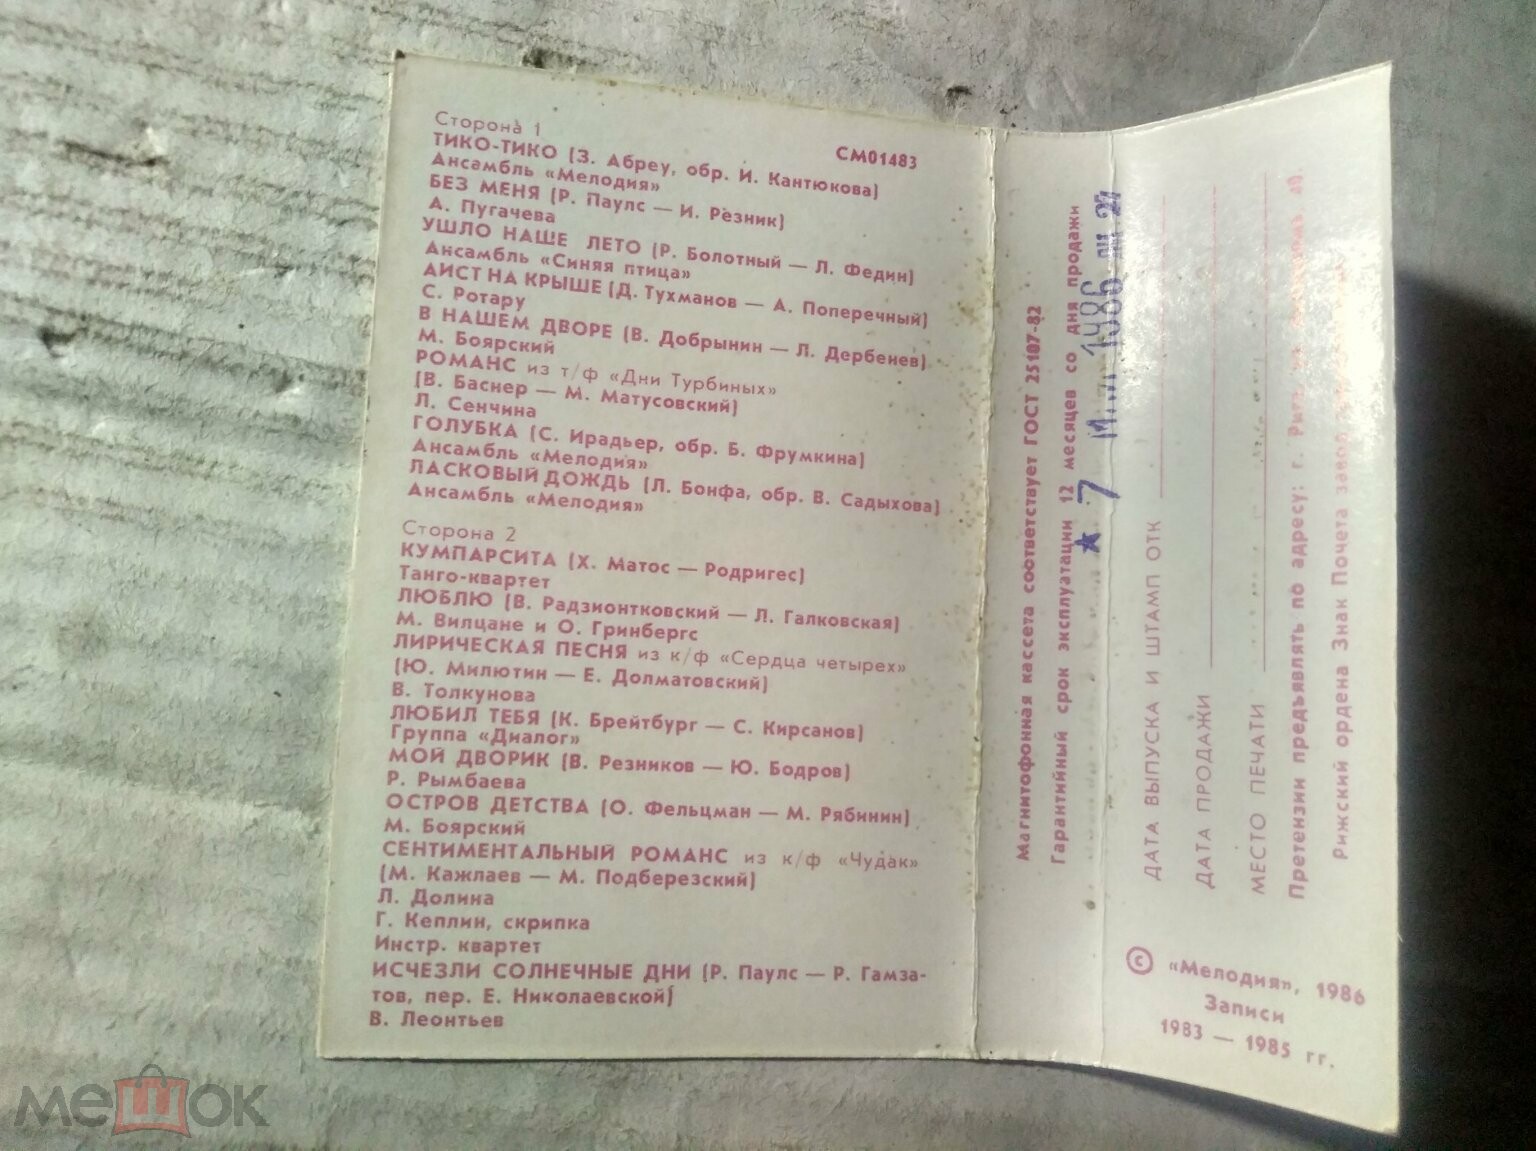 Сторона 1
СМ01483
ТИКО-ТИКО (З. Абреу, обр. И. Кантюкова)
Ансамбль «Мелодия»
БЕЗ МЕНЯ (Р. Паулс — И. Резник)
А. Пугачева
УШЛО НАШЕ ЛЕТО (Р. Болотный — Л. Федин)
Ансамбль «Синяя птица»
АИСТ НА КРЫШЕ (Д. Тухманов — А. Поперечный)
С. Ротару
В НАШЕМ ДВОРЕ (В. Добрынин — Л. Дербенев)
М. Боярский
РОМАНС из т/ф «Дни Турбиных»
(В. Баснер — М. Матусовский)
Л. Сенчина
ГОЛУБКА (С. Ирадьер, обр. Б. Фрумкина)
Ансамбль «Мелодия»
ЛАСКОВЫЙ ДОЖДЬ (Л. Бонфа, обр. В. Садыхова)
Ансамбль «Мелодия»
Сторона 2
КУМПАРСИТА (Х. Матос — Родригес)
Танго-квартет
ЛЮБЛЮ (В. Радзионтковский — Л. Галковская)
М. Вилцане и О. Гринбергс
ЛИРИЧЕСКАЯ ПЕСНЯ из к/ф «Сердца четырех»
(Ю. Милютин — Е. Долматовский)
В. Толкунова
ЛЮБИЛ ТЕБЯ (К. Брейтбург — С. Кирсанов)
Группа «Диалог»
МОЙ ДВОРИК (В. Резников — Ю. Бодров)
Р. Рымбаева
ОСТРОВ ДЕТСТВА (О. Фельцман — М. Рябинин)
М. Боярский
СЕНТИМЕНТАЛЬНЫЙ РОМАНС из к/ф «Чудак»
(М. Кажлаев — М. Подберезский)
Л. Долина
Г. Кеплин, скрипка
Инстр. квартет
ИСЧЕЗЛИ СОЛНЕЧНЫЕ ДНИ (Р. Паулс — Р. Гамза-
тов, пер. Е. Николаевской)
В. Леонтьев
Магнитофонная кассета соответствует ГОСТ 25107-82
Гарантийный срок эксплуатации 12 месяцев со дня продажи
★ 7 1986
ДАТА ВЫПУСКА И ШТАМП ОТК
ДАТА ПРОДАЖИ
МЕСТО ПЕЧАТИ
Претензии предъявлять по адресу: г. Рига,
Рижский ордена Знак Почета завод
© «Мелодия», 1986
Записи
1983 — 1985 гг.
мешок